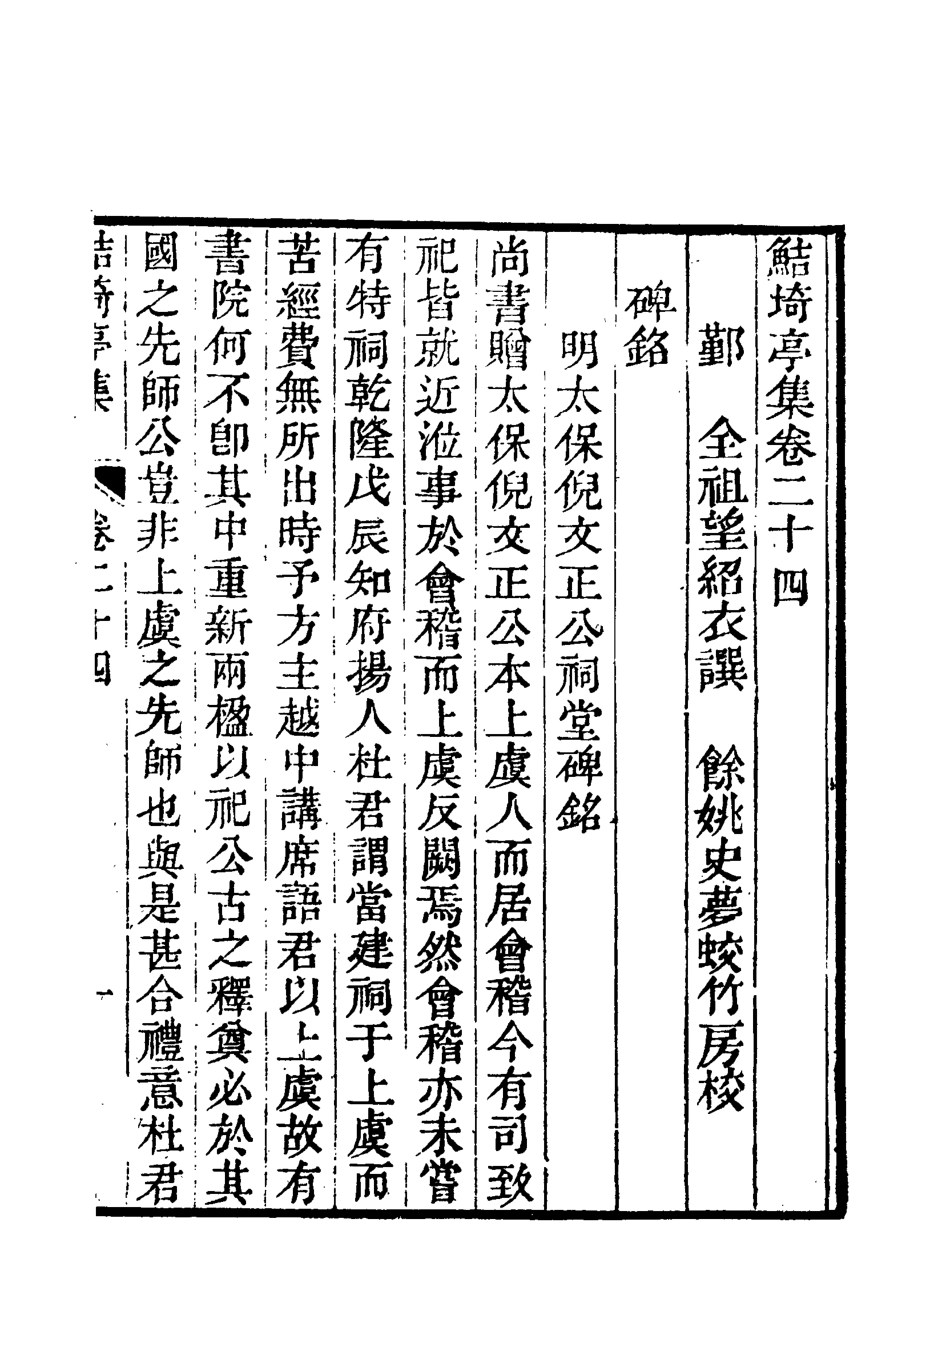 鮚埼亭集卷二十四
鄞　全祖望紹衣譔　餘姚史夢蛟竹房校
碑銘
明太保倪文正公祠堂碑銘
尚書贈太保倪文正公本上虞人而居會稽今有司致
祀皆就近涖事於會稽而上虞反闕焉然會稽亦未嘗
有特祠乾隆戊辰知府揚人杜君謂當建祠于上虞而
苦經費無所出時予方主越中講席語君以上虞故有
書院何不卽其中重新兩楹以祀公古之釋奠必於其
國之先師公豈非上虞之先師也與是甚合禮意杜君
鮚埼亭集　卷二十四　一